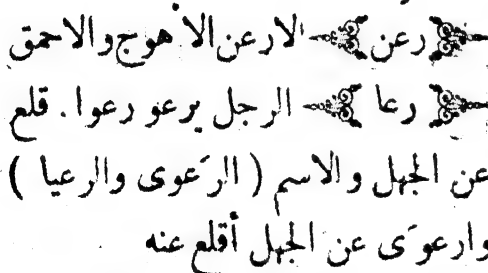 رعن الارعن الأهوج والاحمق
رعا الرجل يرعو رعوا. قلع
عن الجهل والاسم ( الرَعوى والرعيا )
وارعوَى عن الجهل أقلع عنه